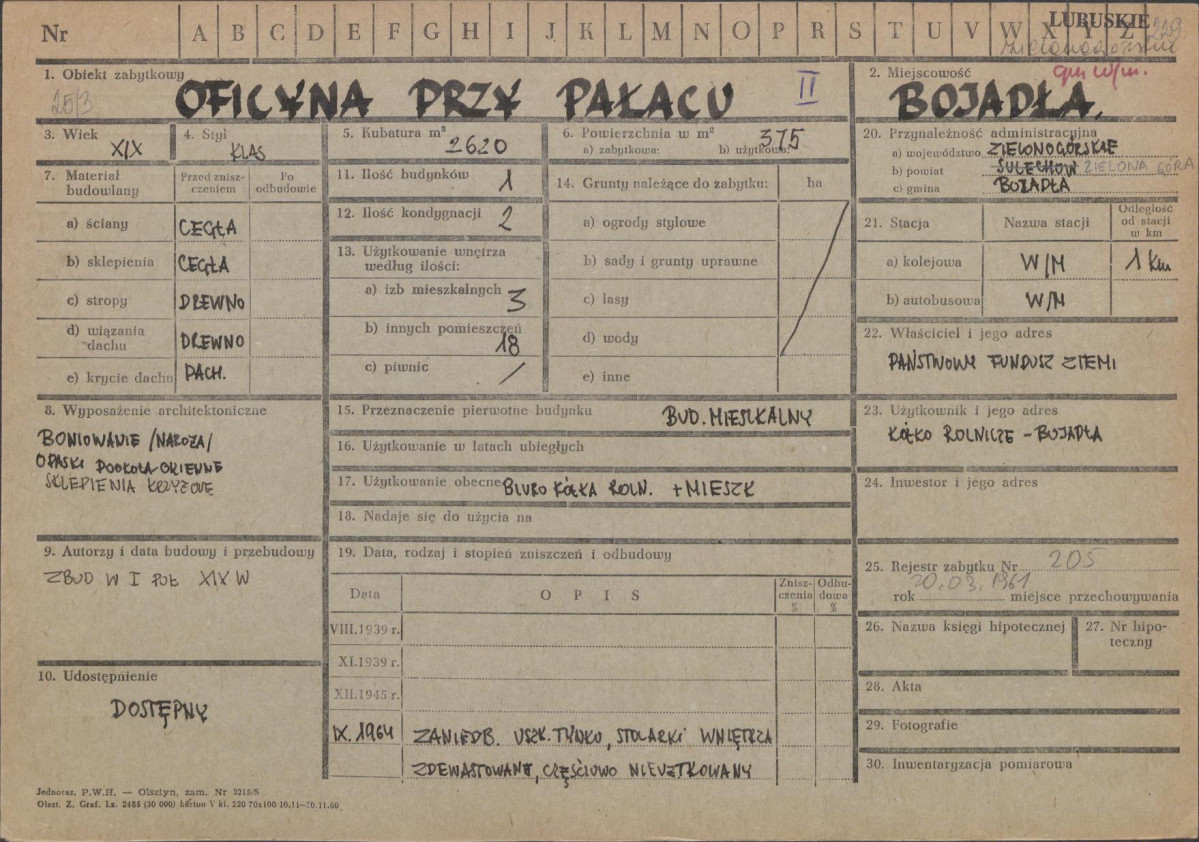 Nr A B C D E F G H I J K L M N O P R S T U V W X Y Z LUBUSKIE 229
zielonogórskie
gm w/m.
1. Obiekt zabytkowy
25/3
OFICYNA PRZY PAŁACU II
2. Miejscowość
BOJADŁA.
3. Wiek
XIX
4. Styl
KLAS
5. Kubatura m³
2620
6. Powierzchnia w m²
a) zabytkowa: b) użytkowa:
375
7. Materiał budowlany
Przed zniszczeniem
Po odbudowie
a) ściany CEGŁA
b) sklepienia CEGŁA
c) stropy DREWNO
d) wiązania dachu DREWNO
e) krycie dachu DACH.
11. Ilość budynków 1
12. Ilość kondygnacji 2
13. Użytkowanie wnętrza
według ilości:
a) izb mieszkalnych 3
b) innych pomieszczeń 18
c) piwnic /
14. Grunty należące do zabytku: ha
a) ogrody stylowe
b) sady i grunty uprawne
c) lasy
d) wody
e) inne
20. Przynależność administracyjna
a) województwo ZIELONOGÓRSKIE
b) powiat SULECHÓW ZIELONA GÓRA
c) gmina BOJADŁA
21. Stacja Nazwa stacji Odległość od stacji w km
a) kolejowa W/M 1 km
b) autobusowa W/M
22. Właściciel i jego adres
PAŃSTWOWY FUNDUSZ ZIEMI
8. Wyposażenie architektoniczne
BONIOWANIE /NAROŻA/
OPASKI DOOKOŁA OKIENNE
SKLEPIENIA KRZYŻOWE
15. Przeznaczenie pierwotne budynku BUD. MIESZKALNY
16. Użytkowanie w latach ubiegłych
17. Użytkowanie obecne BIURO KÓŁKA ROLN. + MIESZK
18. Nadaje się do użycia na
23. Użytkownik i jego adres
KÓŁKO ROLNICZE - BOJADŁA
24. Inwestor i jego adres
9. Autorzy i data budowy i przebudowy
ZBUD W I POŁ XIX W
19. Data, rodzaj i stopień zniszczeń i odbudowy
Data OPIS Zniszczenia % Odbudowa %
VIII.1939 r.
XI.1939 r.
XII.1945 r.
IX. 1964 ZANIEDB. USZK. TYNKO, STOLARKI WNIĘTRZA
ZDEWASTOWANE, CZĘŚCIOWO NIEUŻTKOWANY
25. Rejestr zabytku Nr 205
20.03.1961
rok miejsce przechowywania
26. Nazwa księgi hipotecznej
27. Nr hipoteczny
10. Udostępnienie
DOSTĘPNY
28. Akta
29. Fotografie
30. Inwentaryzacja pomiarowa
Jednoraz. P.W.H. — Olsztyn, zam. Nr 3215/S
Olszt. Z. Graf. Lz. 2485 (30 000) karton V kl. 220 70x100 10.11—30.11.60